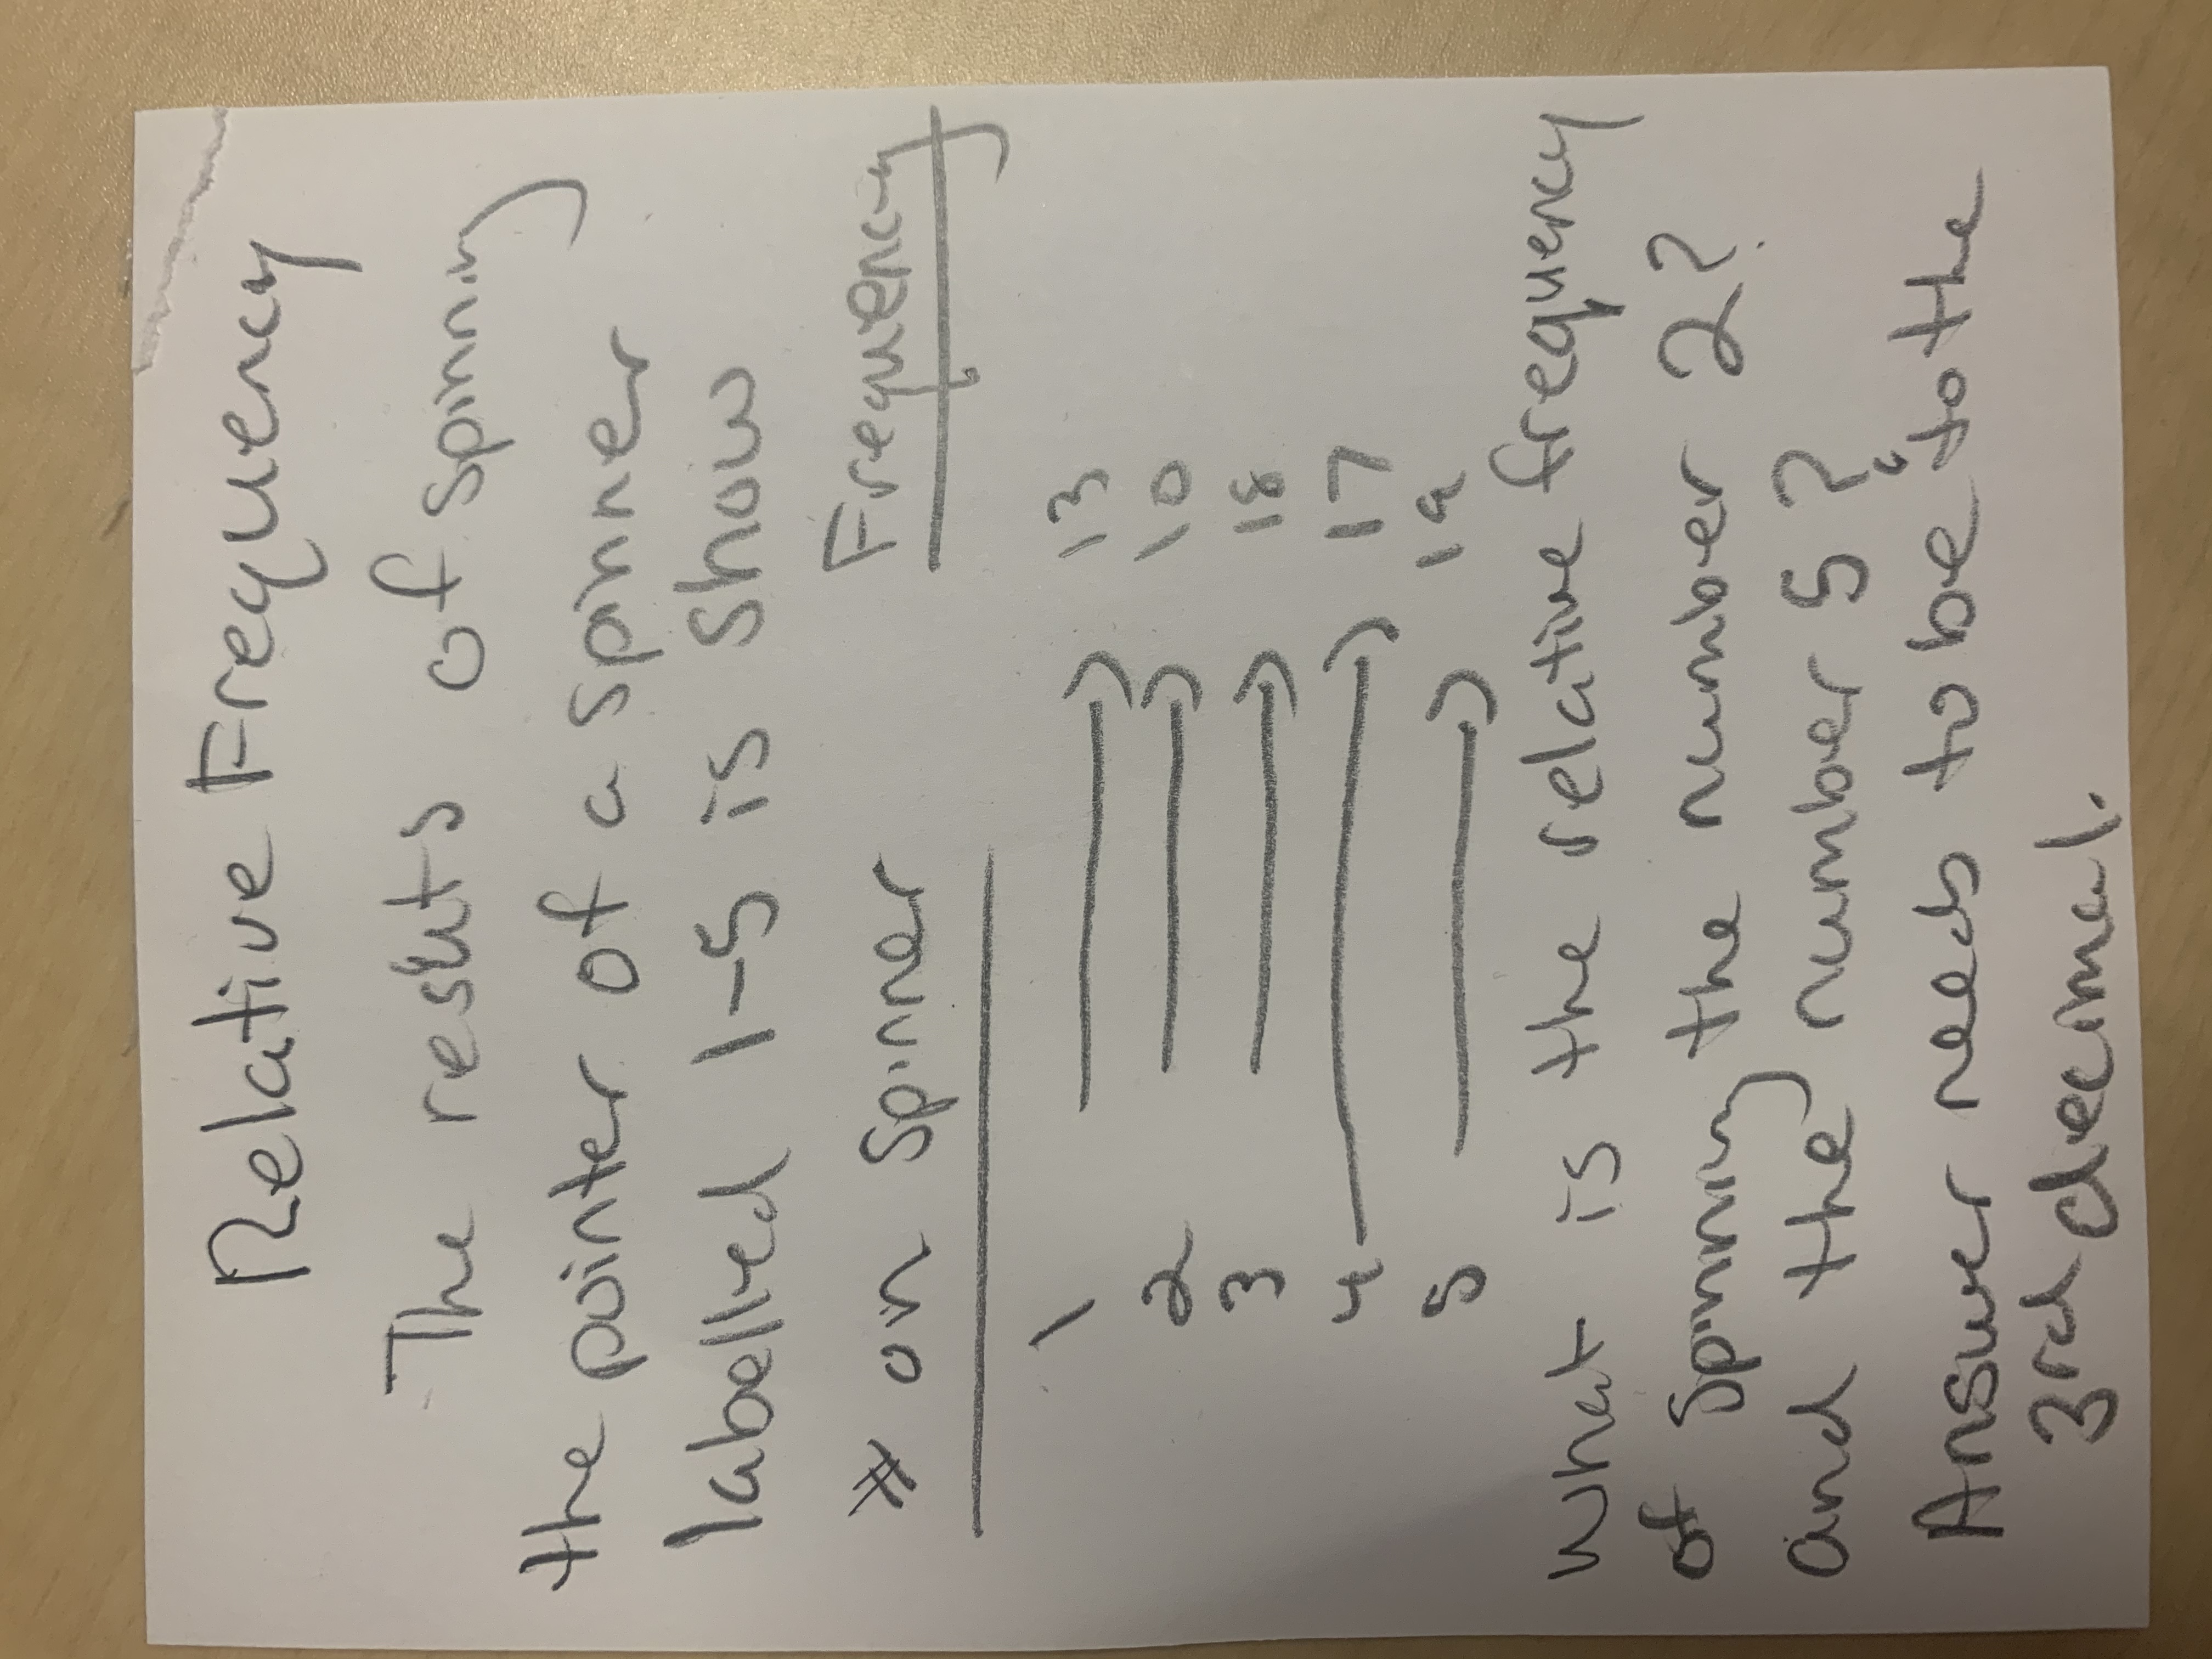 Relative Frequency
The results of spinning
the pointer of a spinner
labelled 1-5 is show
# on spinner Frequency
1 → 13
2 → 10
3 → 18
4 → 17
5 → 19
What is the relative frequency
of spinning the number 2?
and the number 5?
Answer needs to be to the
3rd decimal.